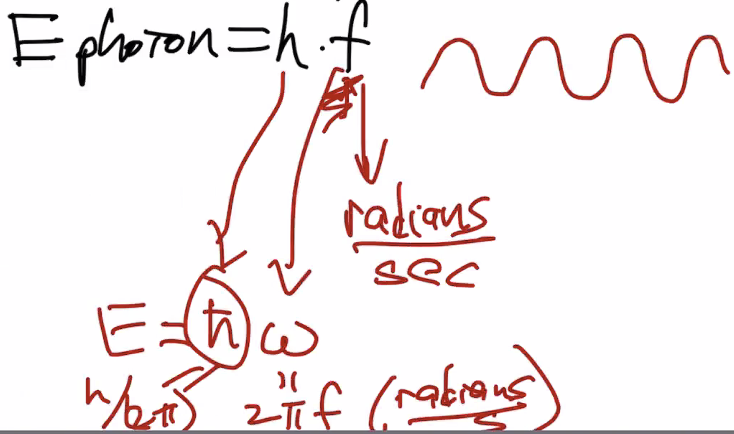 E photon = h · f
radians
sec
E = ħ ω
h/(2π) 2πf (radians/s)